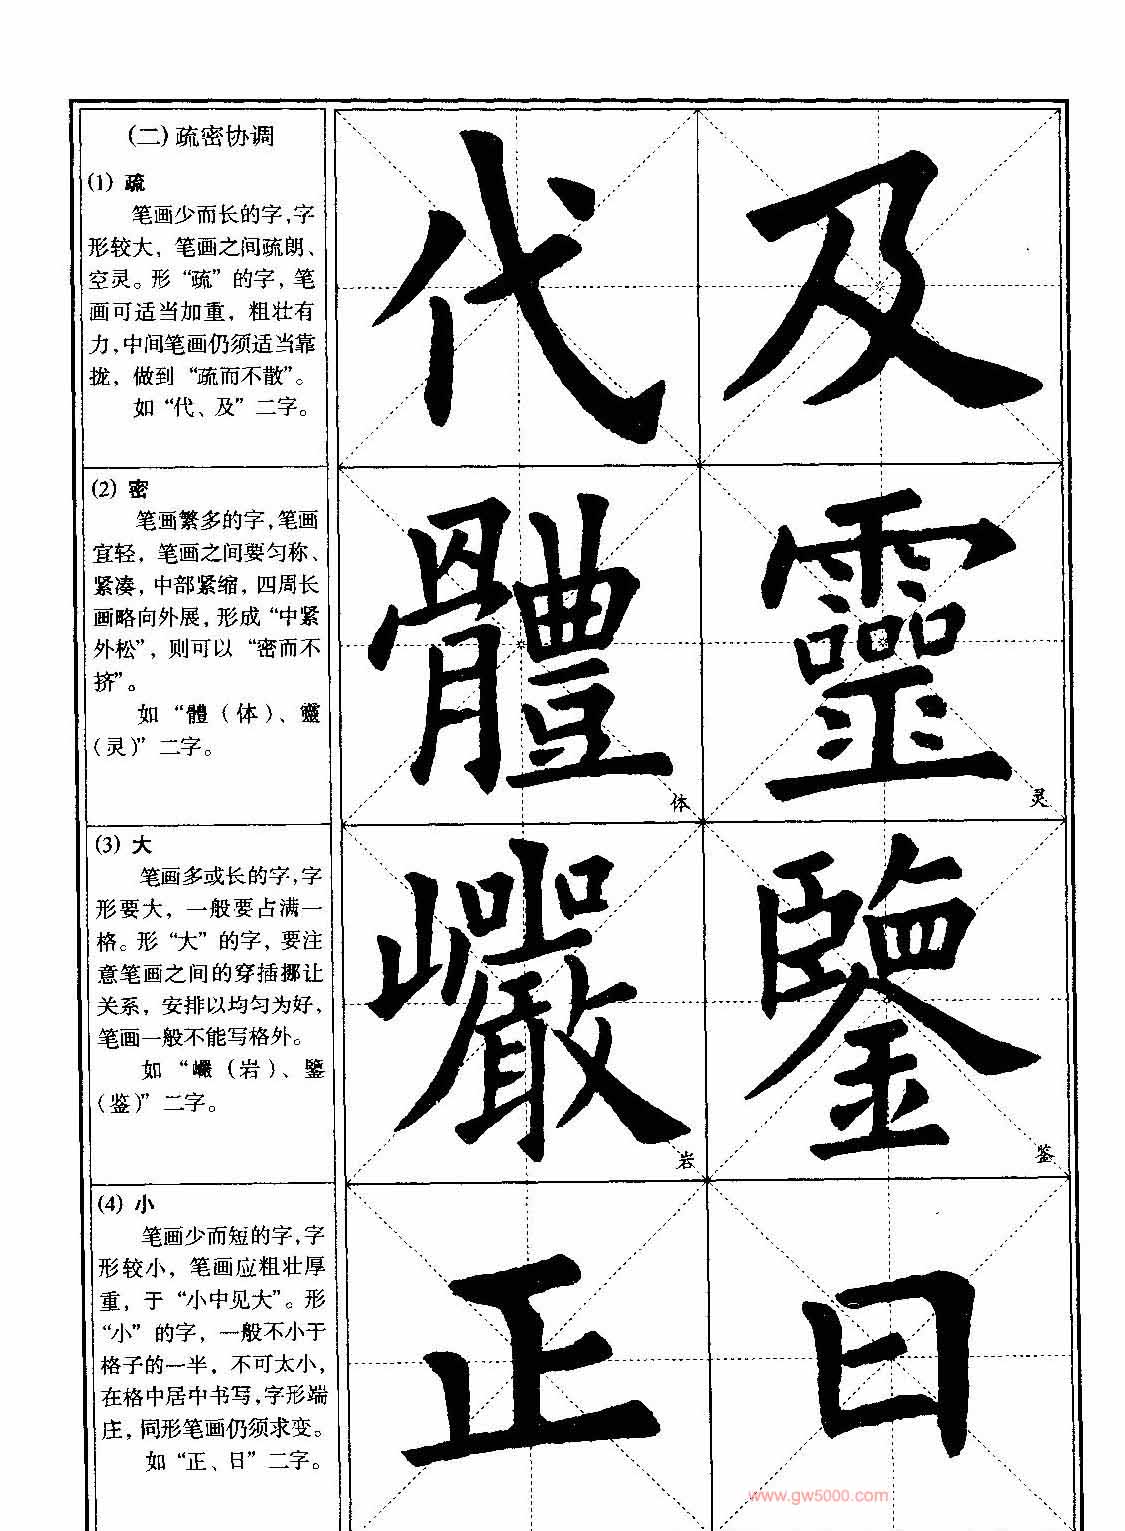 (二)疏密协调
(1) 疏
笔画少而长的字,字
形较大，笔画之间疏朗、
空灵。形“疏”的字，笔
画可适当加重，粗壮有
力,中间笔画仍须适当靠
拢，做到“疏而不散”。
如“代、及”二字。
代 及
(2) 密
笔画繁多的字,笔画
宜轻，笔画之间要匀称、
紧凑，中部紧缩，四周长
画略向外展，形成“中紧
外松”，则可以“密而不
挤”。
如“體（体）、靈
（灵）”二字。
體 靈
体 灵
(3) 大
笔画多或长的字,字
形要大，一般要占满一
格。形“大”的字，要注
意笔画之间的穿插挪让
关系，安排以均匀为好、
笔画一般不能写格外。
如“巗（岩）、鑒
（鉴）”二字。
巗 鑒
岩 鉴
(4) 小
笔画少而短的字,字
形较小，笔画应粗壮厚
重，于“小中见大”。形
“小”的字，一般不小于
格子的一半，不可太小，
在格中居中书写,字形端
庄，同形笔画仍须求变。
如“正、日”二字。
正 日
www.gw5000.com